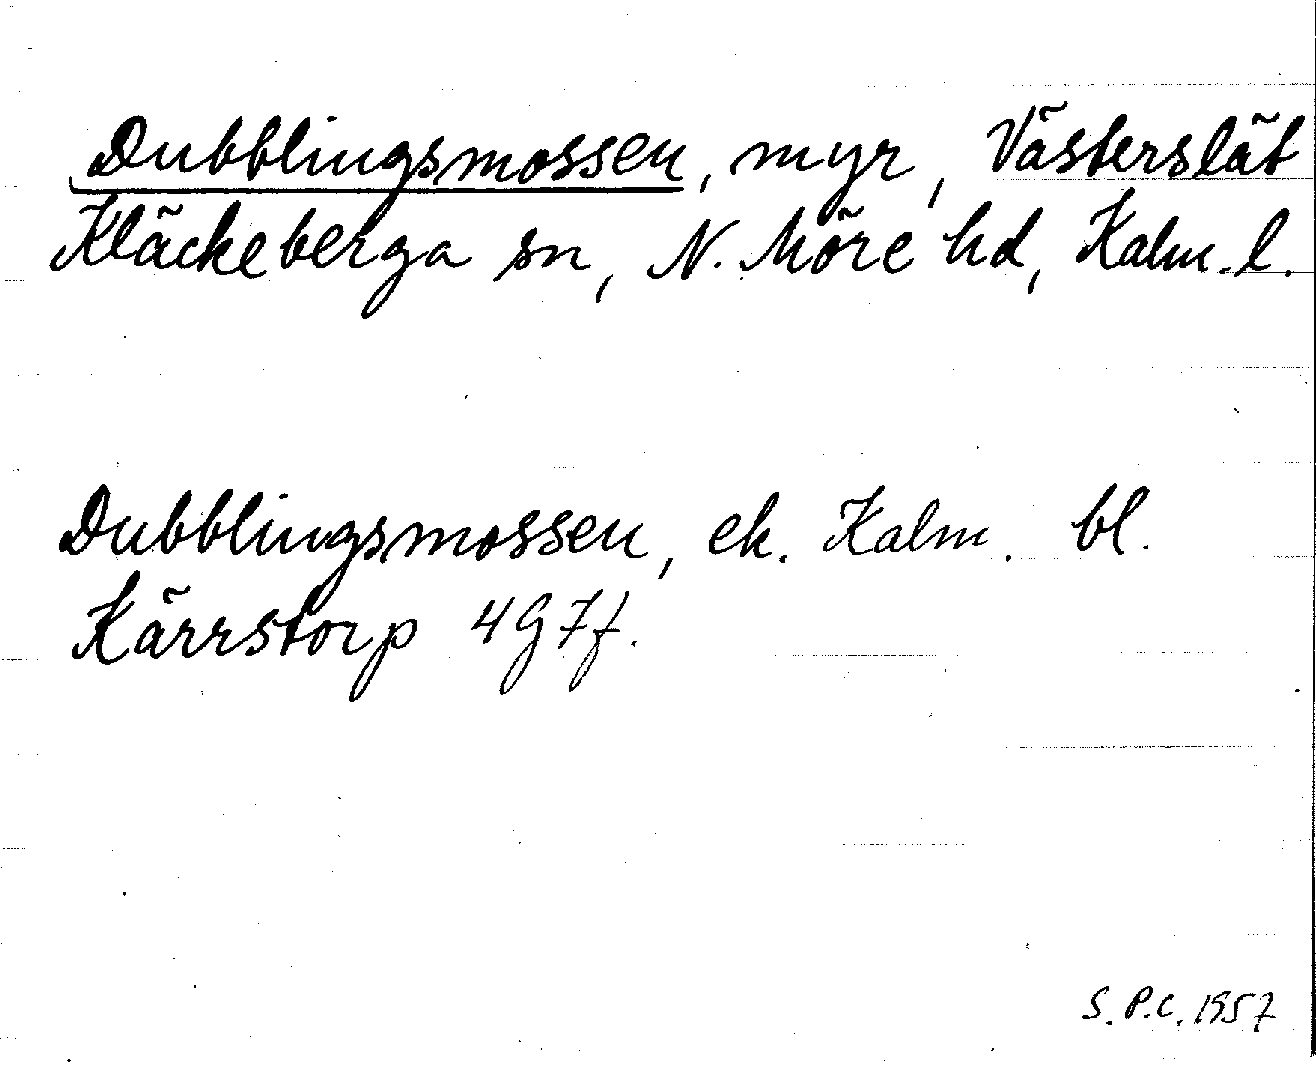 Dubblingsmossen, myr, Västerslät
Kläckeberga sn, N. Möre hd, Kalm. l.
Dubblingsmossen, ek. Kalm. bl.
Kärrstorp 4G7f.
S.P.C. 1957